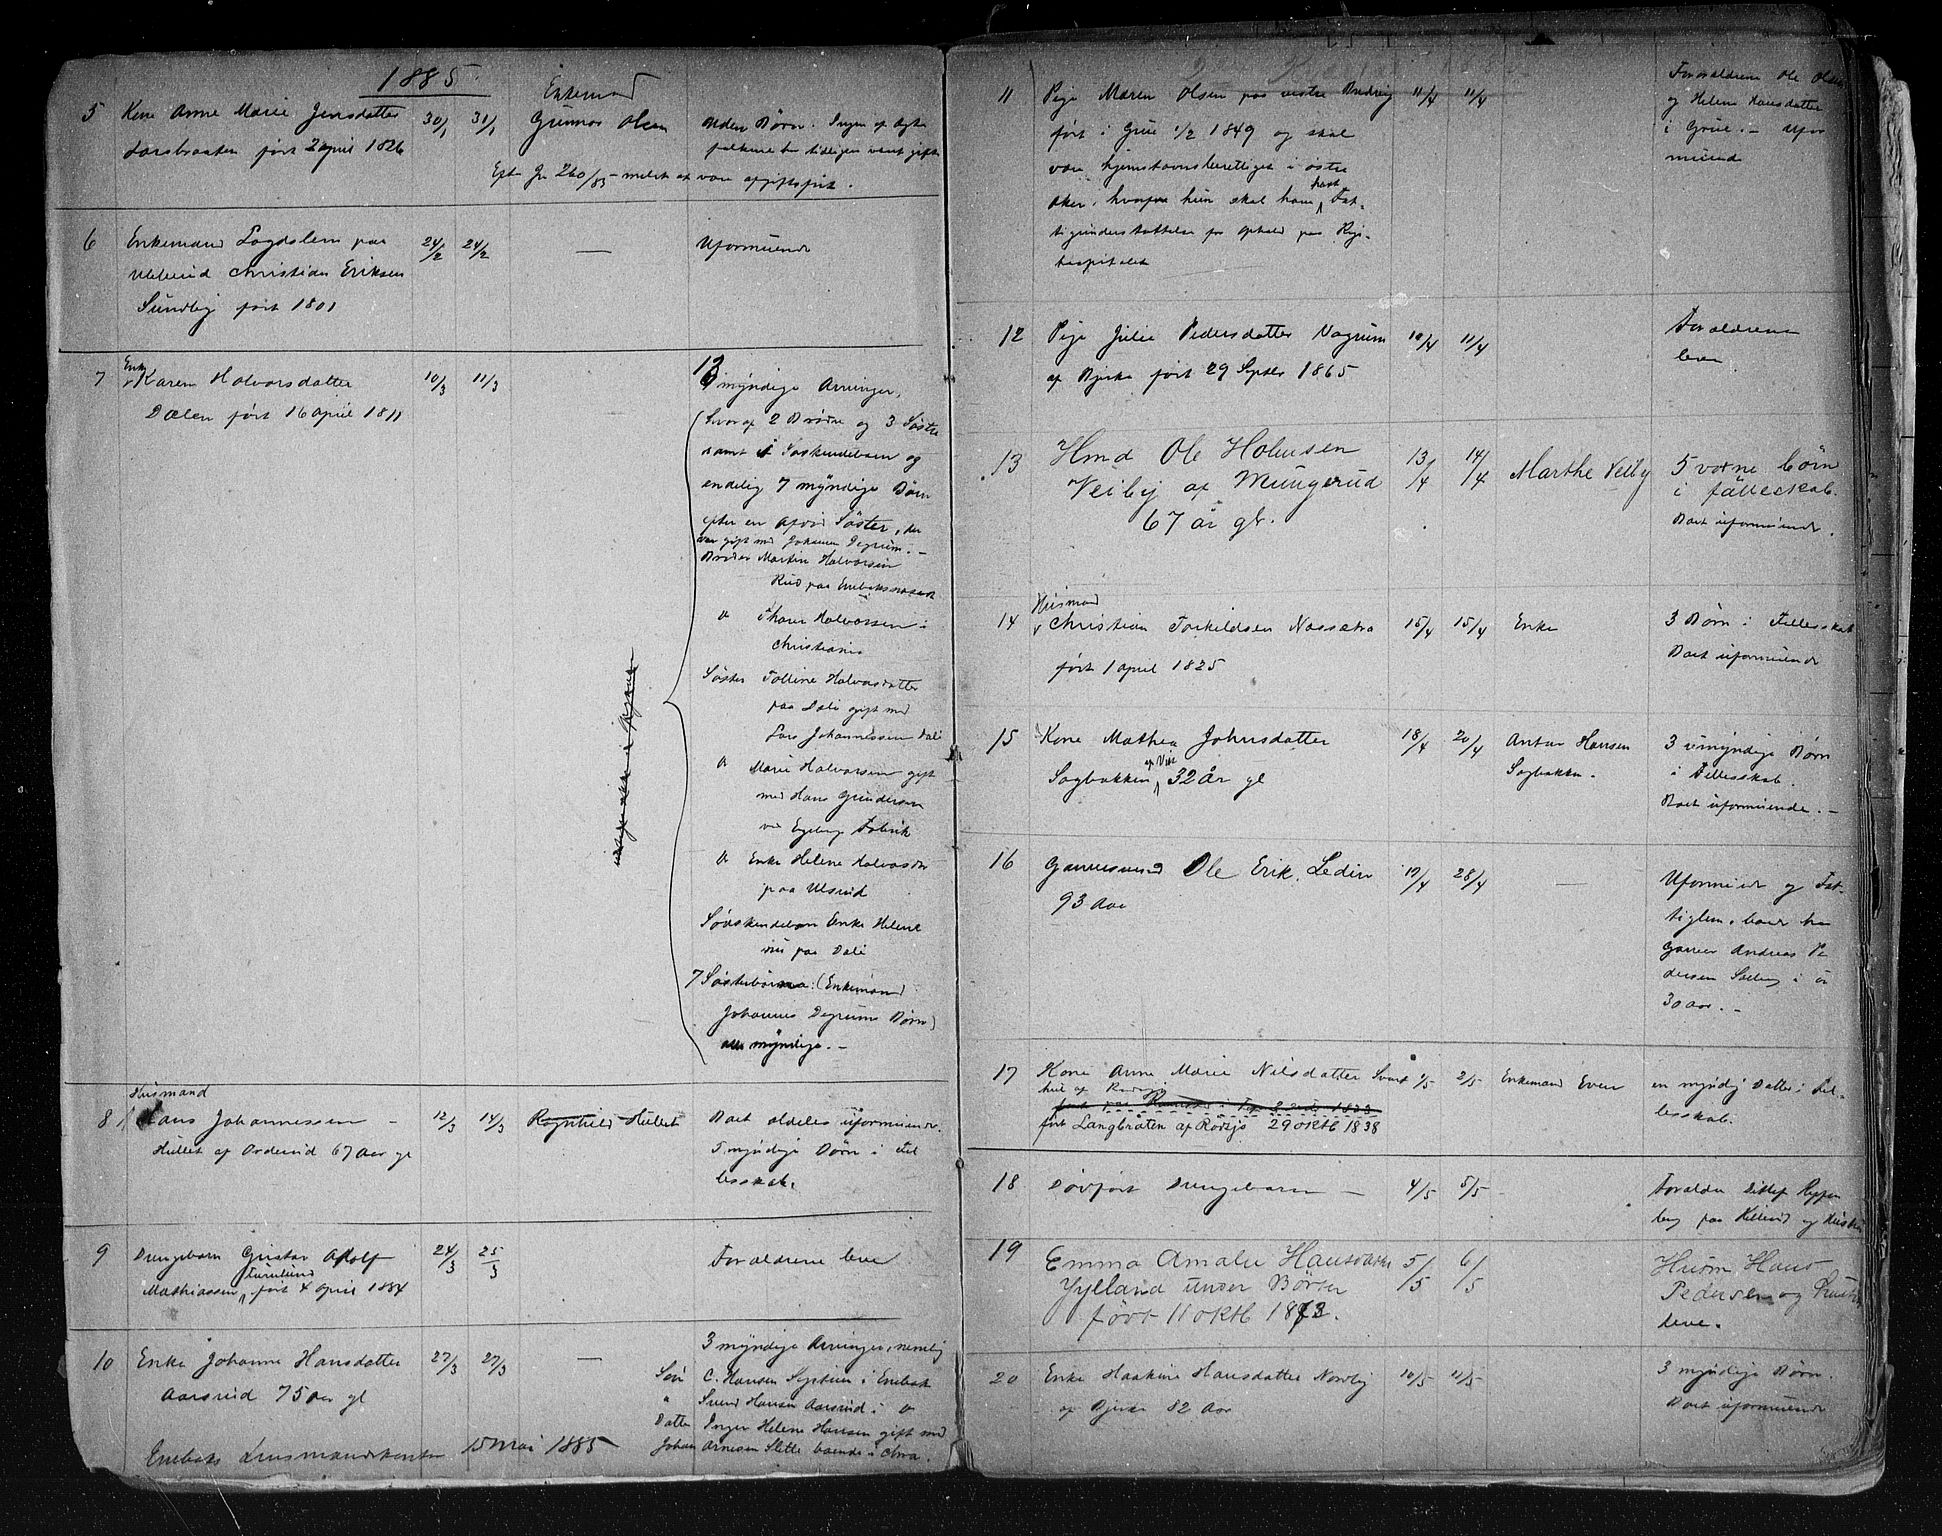 1885
5 Kone Anne Marie Jensdatter 30/1 31/1 Enkemand
Larsbraaten født 2 april 1826 Gunnar Olsen Uden Børn. Ingen af Ægte
folkene har tidligere været gift
Efter Jr 260/85 meldt at være afgiftsfrit.
6 Enkemand Lægdslem paa 24/2 24/2 — Uformuende
Christian Eriksen
Sundby født 1801
7 Enke Karen Halvorsdatter 10/3 11/3 13 myndige Arvinger,
Dælen født 16 april 1811
hvoraf 2 Brødre og 3 Søstre
samt 1 Søskendebarn og
endelig 7 myndige Børn
efter en afdød Søster, der
var gift med Johannes Degrum. —
Broder Martin Halvorsen
Rud paa Enebaksneset
" Thorer Halvorsen i
Christiania
Søster Polline Halvorsdatter
paa Dæli gift med
Lars Johannessen Dæli
" Marie Halvorsen gift
med Hans Gundersen
ved Egebergs Fabrik
" Enke Helene Halvorsdtr
paa Ulsrud
Søskendebarn Enke Helene
paa Dæli
7 Søsterbørn: (Enkemand
Johannes Degrums Børn)
alle myndige. —
8 Husmand
Hans Johannessen — 12/3 14/3 Ragnhild Hullet Boet aldeles uformuende.
Hullet af Orderud 67 Aar gl 5 myndige Børn i Fel
lesskab.
9 Drengebarn Gustav Adolf 24/3 25/3 Forældrene leve
Mathiassen født 4 april 1884
10 Enke Johanne Hansdatter 27/3 27/3 — 3 myndige Arvinger, nemlig
Aarsrud 75 aar gl Søn C. Hansen i Enebak
" Svend Hansen Aarsrud i "
Datter Inger Helene Hansen gift med
Johan Arnesen Slette boende i Chra.
Enebaks Lensmandskontor 15 Mai 1885
11 Pige Maren Olsen paa vestre Burdvig 11/4 11/4 Forældrene Ole Olsen
født i Grue 1/2 1849 og skal og Helene Hansdatter
være hjemstavnsberettiget i østre i Grue. — Ufor
Aker, hvorfra hun skal have havt Fat- muende
tigunderstøttelse for Ophold paa Rigs-
hospitalet
12 Pige Julie Pedersdatter Vagrum 10/4 11/4 Forældrene
af Bjerke født 29 Septbr 1865 leve
13 Hmd Ole Holmsen 13/4 14/4 Marthe Veiby 5 vorne børn
Veiby af Mungerud i fælleskab.
67 år gl. Boet uformuende.
14 Husmand
Christian Torkildsen Næssetra 15/4 15/4 Enke 3 Børn i Fellesskab
født 1 april 1825 Boet uformuende
15 Kone Mathea Johnsdatter 18/4 20/4 Anton Hansen 3 umyndige Børn
Sagbakken 32 år gl Sagbakken. i Fellesskab.
Boet uformuende. —
16 Ole Erik. Ledin 19/4 28/4 — Uformuende og Fat-
93 Aar tiglem, havde hos
Gaardr Andreas Pe
dersen i
30 aar. —
17 Kone Anne Marie Nilsdatter 1/5 2/5 Enkemand Even en myndig Datter i Fel-
hul af Rødsjø lesskab.
født Langbråten af Rødsjø 29 oktb 1838
18 Dødfødt Drengebarn — 4/5 5/5 Forældre Ditlef
paa og Hustru
19 Emma Amalie Hansdatter 5/5 6/5 Husm Hans
Jylland under Børter Pedersen og Hustru
født 11 oktb 1873. leve.
20 Enke Haakine Hansdatter Nordby 10/5 11/5 3 myndige Børn.
af Bjerke 82 Aar Boet uformuende